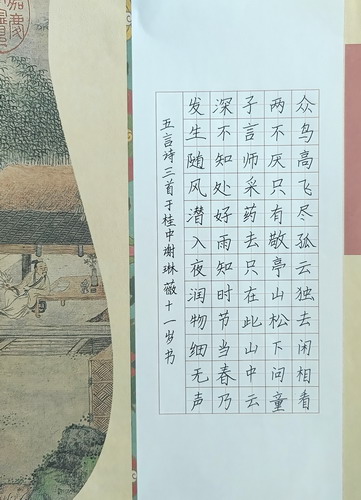 众鸟高飞尽孤云独去闲相看
两不厌只有敬亭山松下问童
子言师采药去只在此山中云
深不知处好雨知时节当春乃
发生随风潜入夜润物细无声
五言诗三首于桂中谢琳薇十一岁书
嘉慶